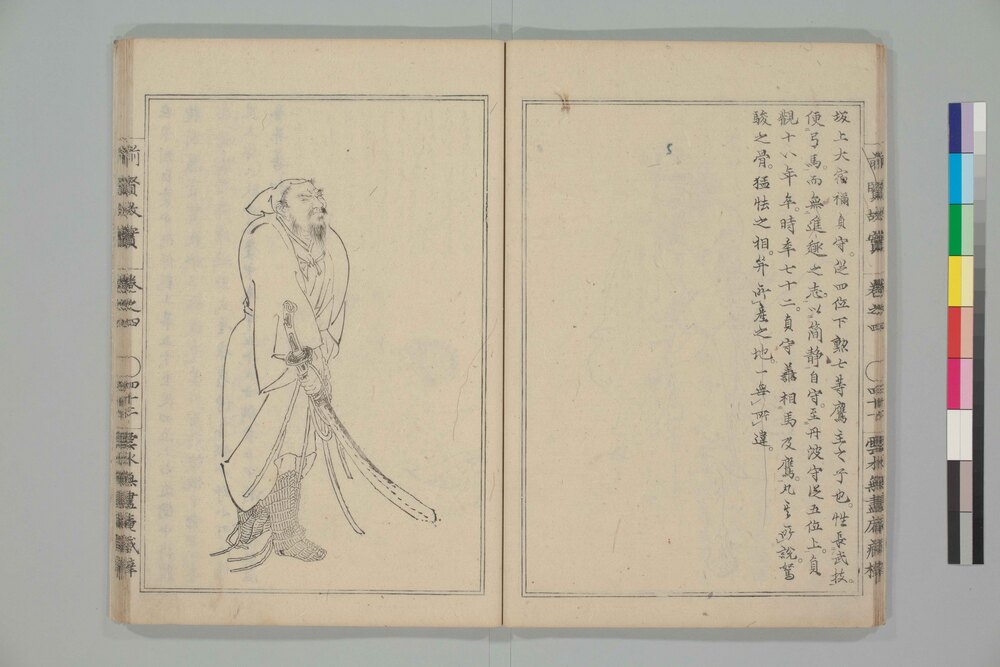 坂上大宿禰貞守。從四位下勲七等鷹主之子也。性長武技。
便弓馬。而無進趣之志。以簡静自守。至丹波守從五位上。貞
觀十八年卒。時年七十二。貞守善相馬及鷹。凡其所說駑
駿之骨。猛怯之相。并所產之地。一無所違。
前賢故實 卷之四
雲水無盡庵藏梓
前賢故實 卷之四
雲水無盡庵藏梓